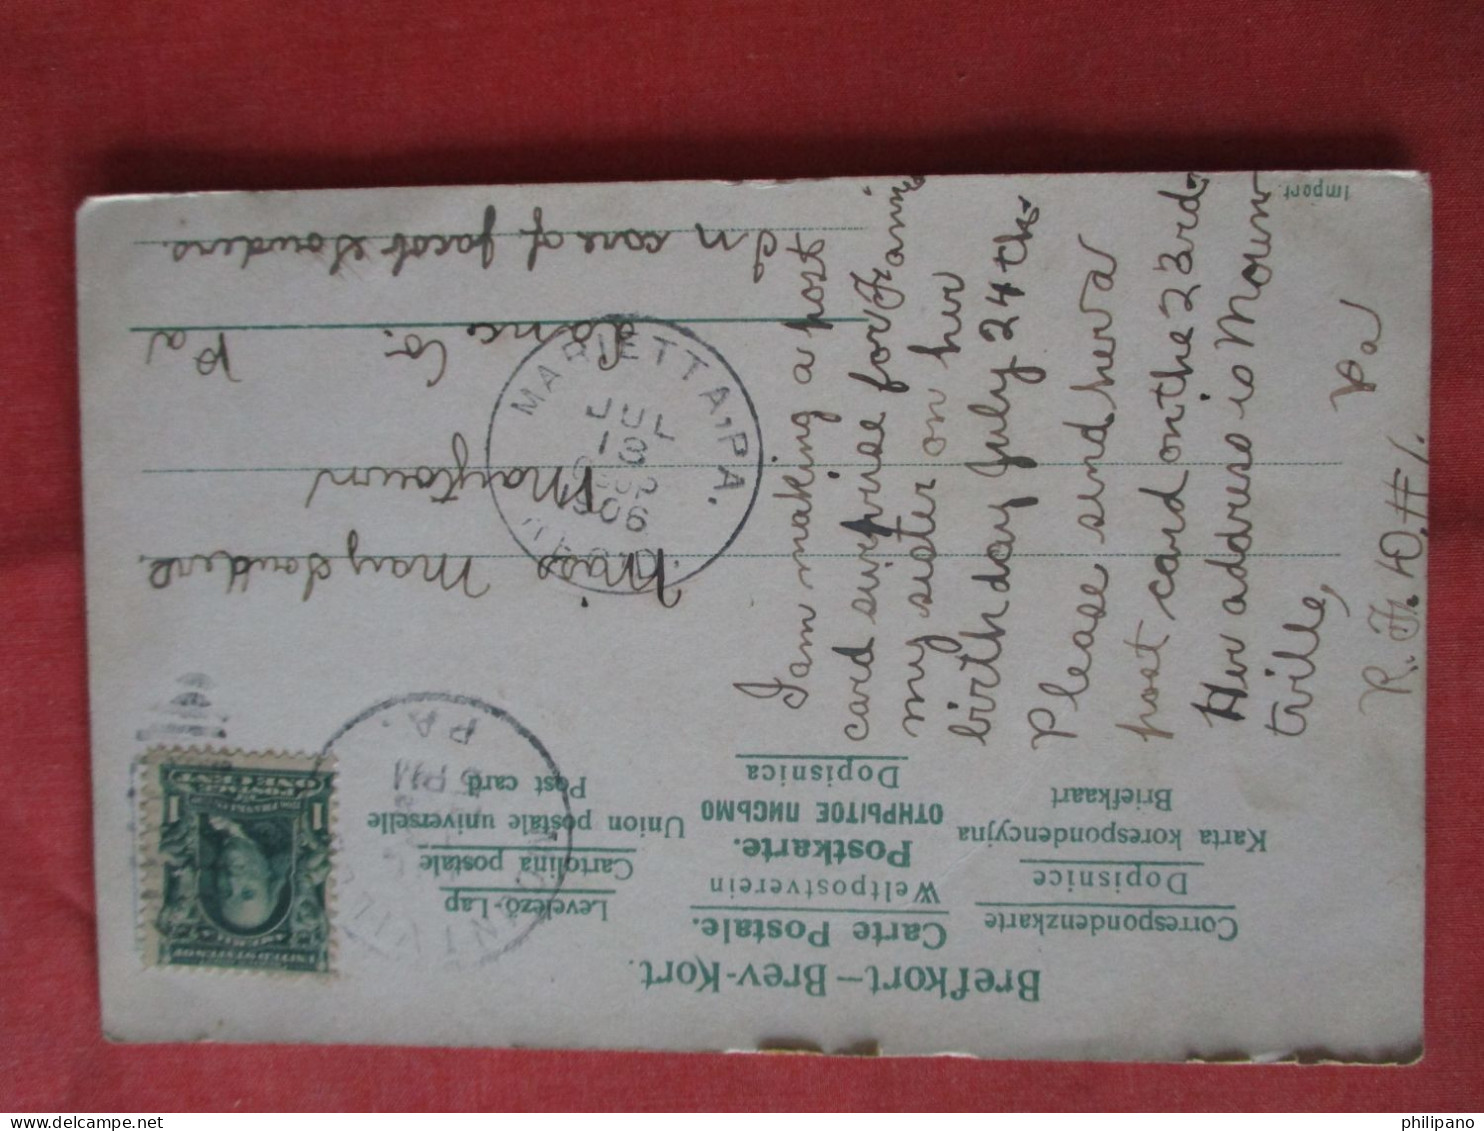 Brefkort—Brev-Kort.
Correspondenzkarte
Dopisnice
Karta korespondencyjna
Briefkaart
Carte Postale.
Weltpostverein
Postkarte.
ОТКРЫТОЕ ПИСЬМО
Dopisnica
Levelező-Lap
Cartolina postale
Union postale universelle
Post card
Import.
ONE CENT
1 1
PA.
5 PM
MARIETTA, PA.
JUL
13
1906
Miss May Souders.
Maytown
Lanc. Co. Pa
In care of Jacob Souders.
I am making a post
card surprise for Fannie
my sister on her
birthday July 24th.
Please send her a
post card on the 23rd.
Her address is Moun
tville, Pa
R. F. D. # 1.
philipano